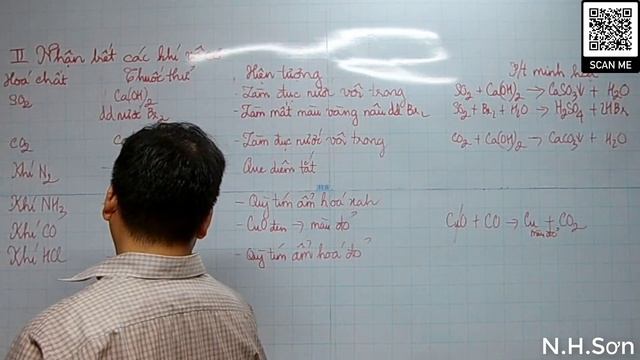 II Nhận biết các khí
Hoá chất Thuốc thử Hiện tượng P/t minh hoạ
SO2 Ca(OH)2 - Làm đục nước vôi trong SO2 + Ca(OH)2 → CaSO3↓ + H2O
dd nước Br2 - Làm mất màu vàng nâu dd Br2 SO2 + Br2 + H2O → H2SO4 + 2HBr
CO2 Ca - Làm đục nước vôi trong CO2 + Ca(OH)2 → CaCO3↓ + H2O
Khí N2 Que diêm tắt
Khí NH3 - Quỳ tím ẩm hoá xanh
Khí CO - CuO đen → màu đỏ CuO + CO → Cu + CO2
màu đỏ
Khí HCl - Quỳ tím ẩm hoá đỏ
SCAN ME
N.H.Sơn